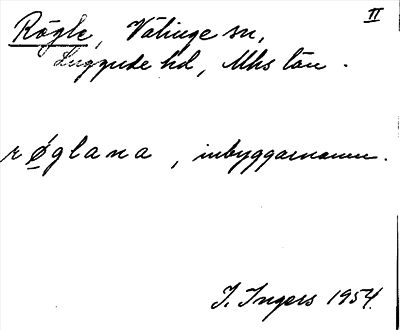 II
Rögle, Välinge sn,
Luggude hd, Mhs län.
røglana, inbyggarnamn.
I. Ingers 1954.